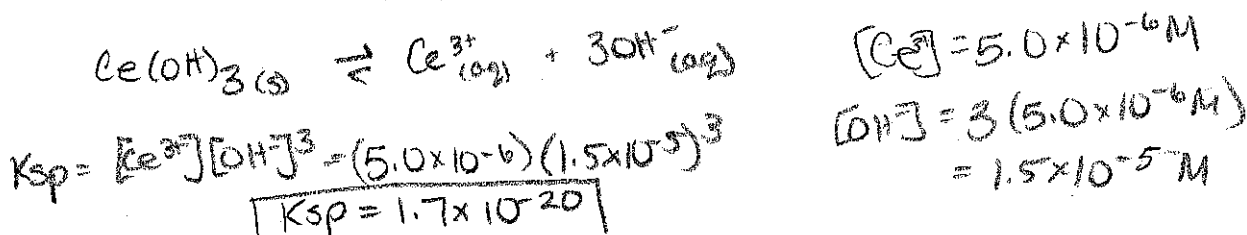 Ce(OH)3(s) ⇌ Ce3+(aq) + 3OH-(aq)
Ksp = [Ce3+][OH-]3 = (5.0×10-6)(1.5×10-5)3
Ksp = 1.7×10-20
[Ce3+] = 5.0×10-6 M
[OH-] = 3(5.0×10-6 M)
= 1.5×10-5 M